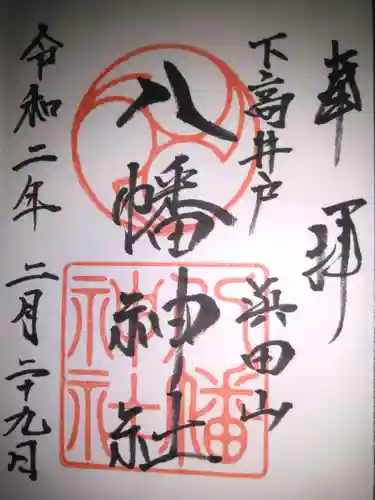 奉拝
下高井戸
浜田山
八幡神社
八幡
神社
令和二年 二月二十九日